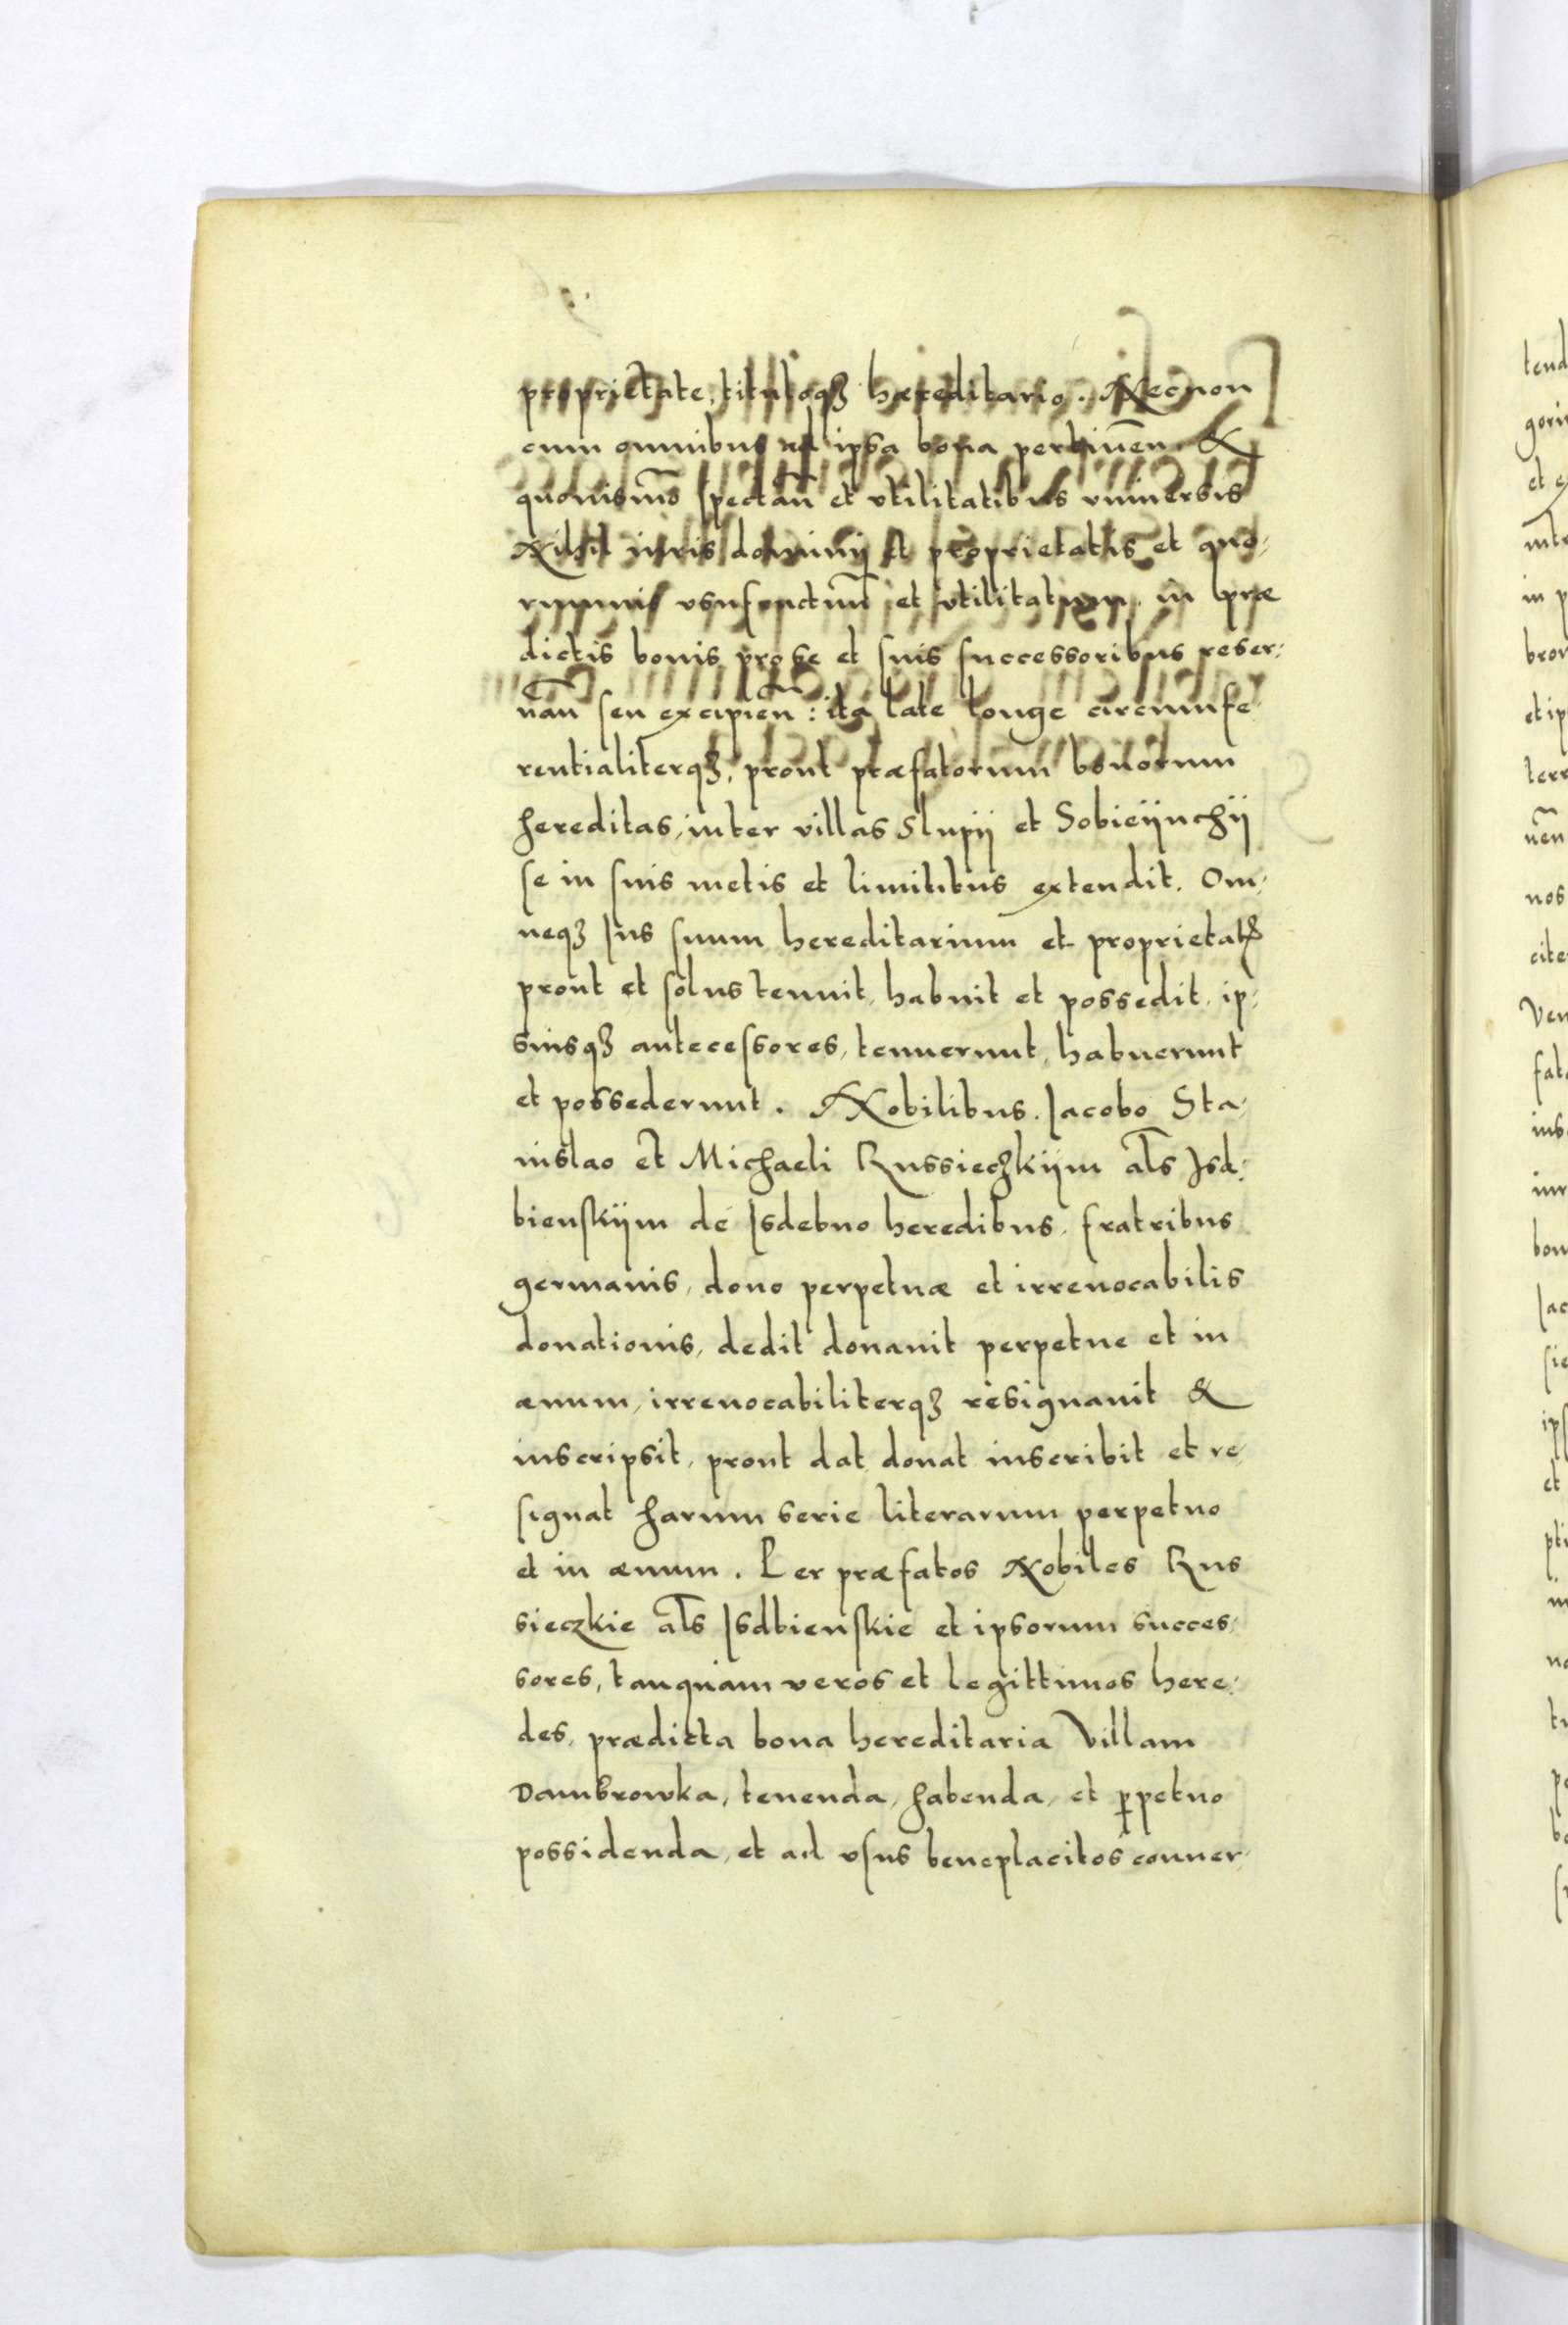 proprietate, tituloqꝫ hæreditario. Necnon
cum omnibus ad ipsa bona pertineñ. &
quouismõ spectañ et vtilitatibus vniuersis
Nihil iuris dominij et proprietatis et quo-
rumuis vsufructuũ et vtilitatum in præ
dictis bonis pro se et suis successoribus reser-
uañ seu excipieñ: ita late longe circumfe
rentialiterqꝫ, prout præfatorum bonorum
hereditas, inter villas Slupij et Sobieijuchij
se in suis metis et limitibus extendit. Om-
neqꝫ Jus suum hereditarium et proprietatꝭ
prout et solus tenuit, habuit et possedit, ip-
siusqꝫ antecessores, tenuerunt, habuerunt
et possederunt. Nobilibus. Jacobo Sta-
nislao et Michaeli Russieczkijm als̃ Jsd-
bienskijm de Jsdebno heredibus, fratribus
germanis, dono perpetuæ et irreuocabilis
donationis, dedit donauit perpetue et in
æuum, irreuocabiliterqꝫ resignauit &
inscripsit, prout dat donat inscribit et re-
signat harum serie literarum perpetuo
et in æuum. Per præfatos Nobiles Rus
sieczkie als̃ Jsdbienskie et ipsorum succes-
sores, tanquam veros et legittimos here-
des, prædicta bona hereditaria Villam
Dambrowka, tenenda, habenda, et ꝑpetuo
possidenda, et ad vsus beneplacitos conuer-
tend
gori